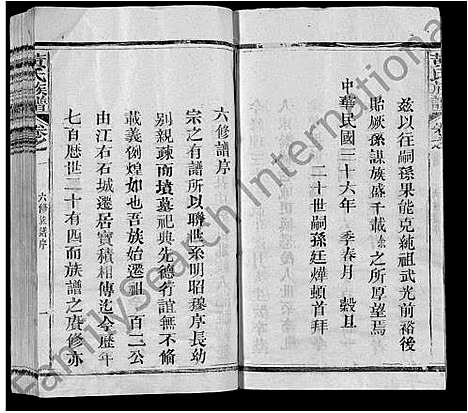 茲以往嗣孫果能克繩祖武光前裕後
貽厥孫謀族盛千載余之所厚望焉
中華民國三十六年季春月穀旦
二十世嗣孫廷燁頓首拜
黃氏族譜
六修譜序
宗之有譜所以聯世系明昭穆序長幼
別親疎而墳墓祀典先德行誼無不備
載義例煌如也吾族始遷祖一百二公
由江右石城遷居寶積相傳迄今歷年
七百歷世二十有四而族譜之賡修亦
黃氏族譜 卷之
六修譜序 一
FamilySearch International